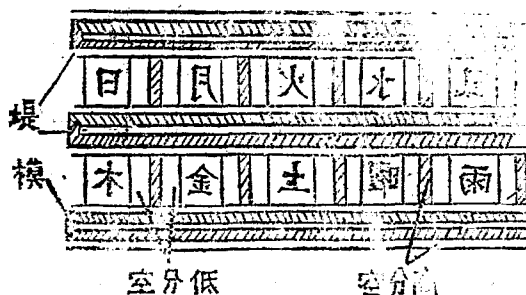 日 月 火 水
堤
模
木 金 土 雨
空分低 空分高